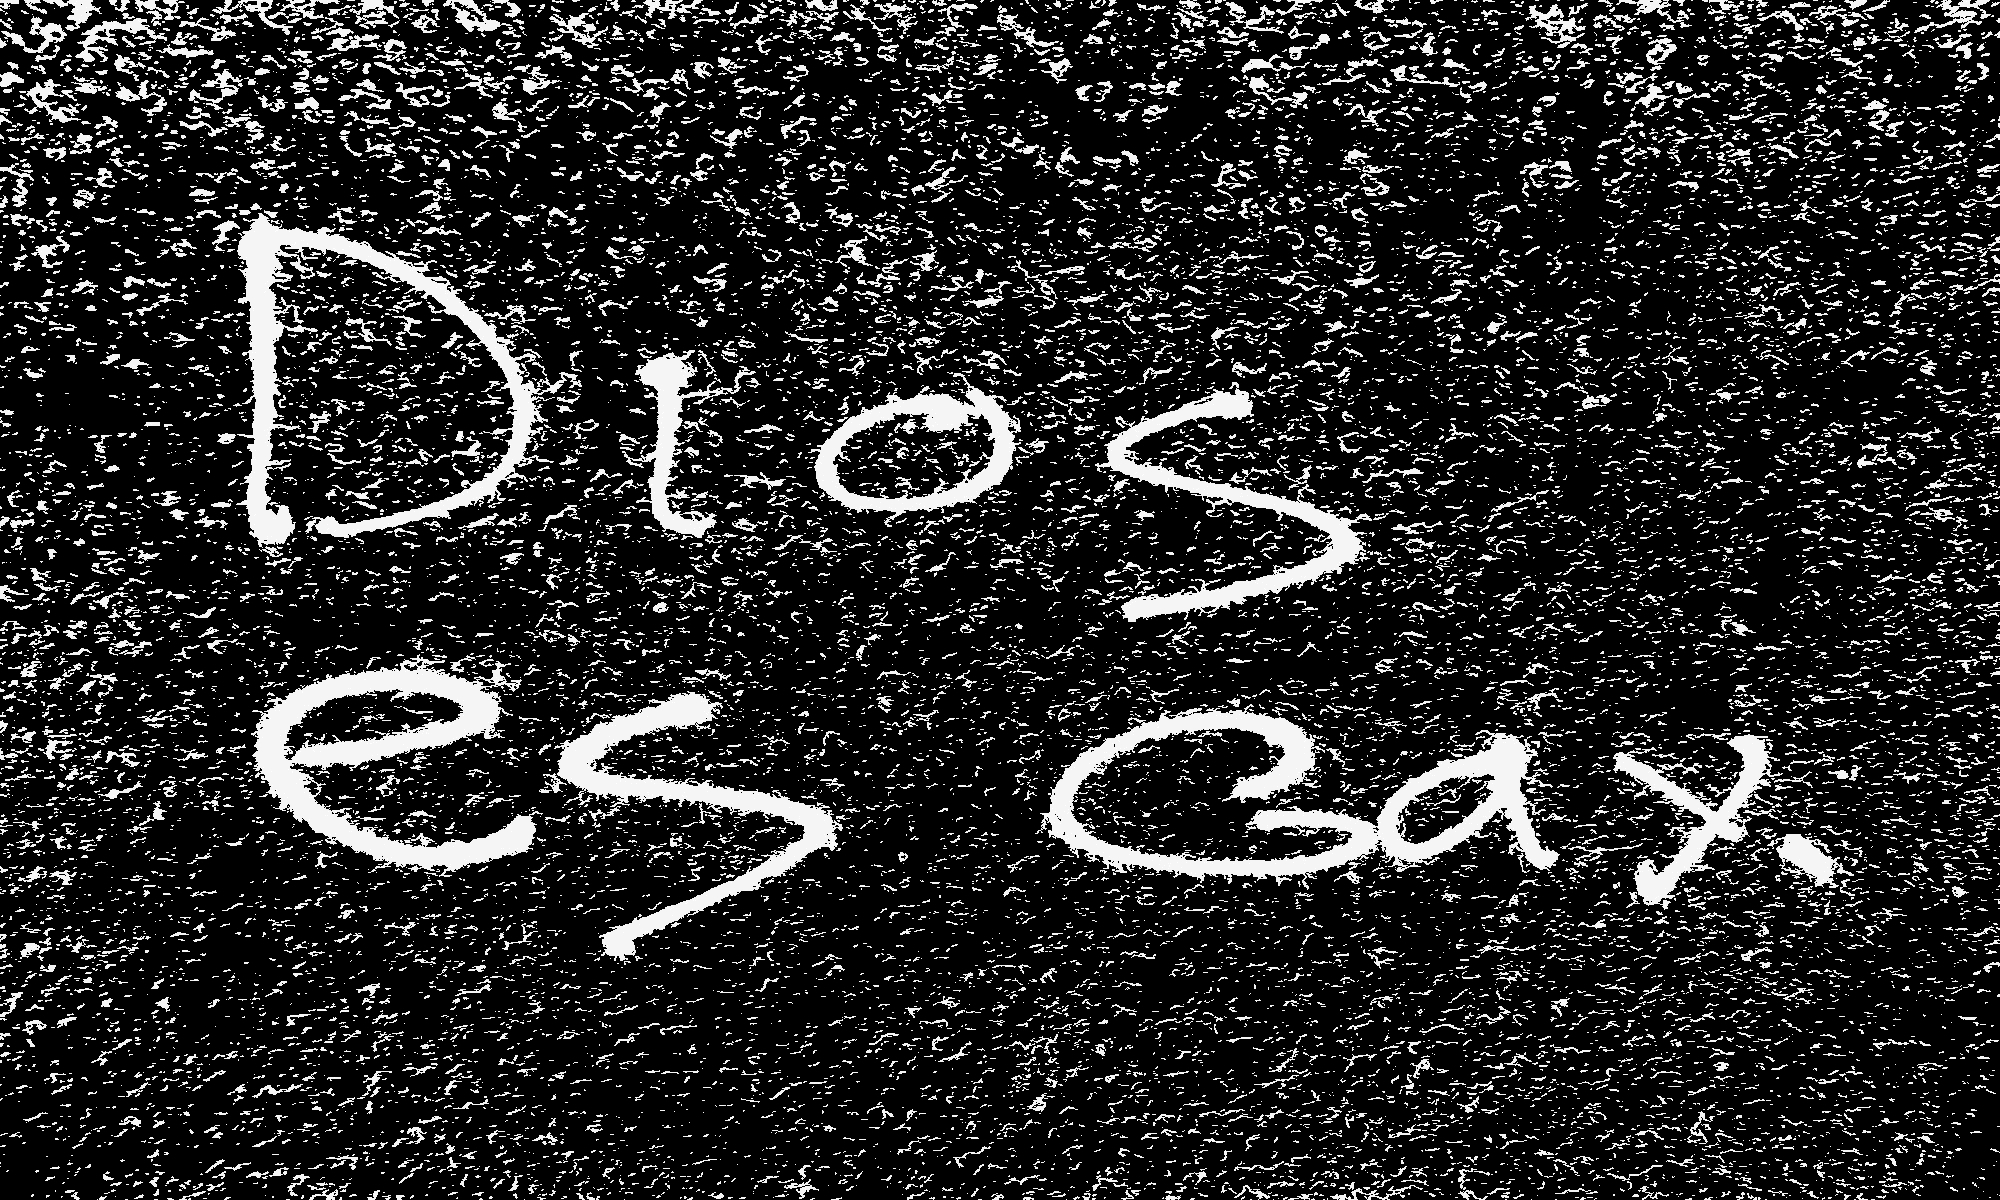 Dios
es Gax.